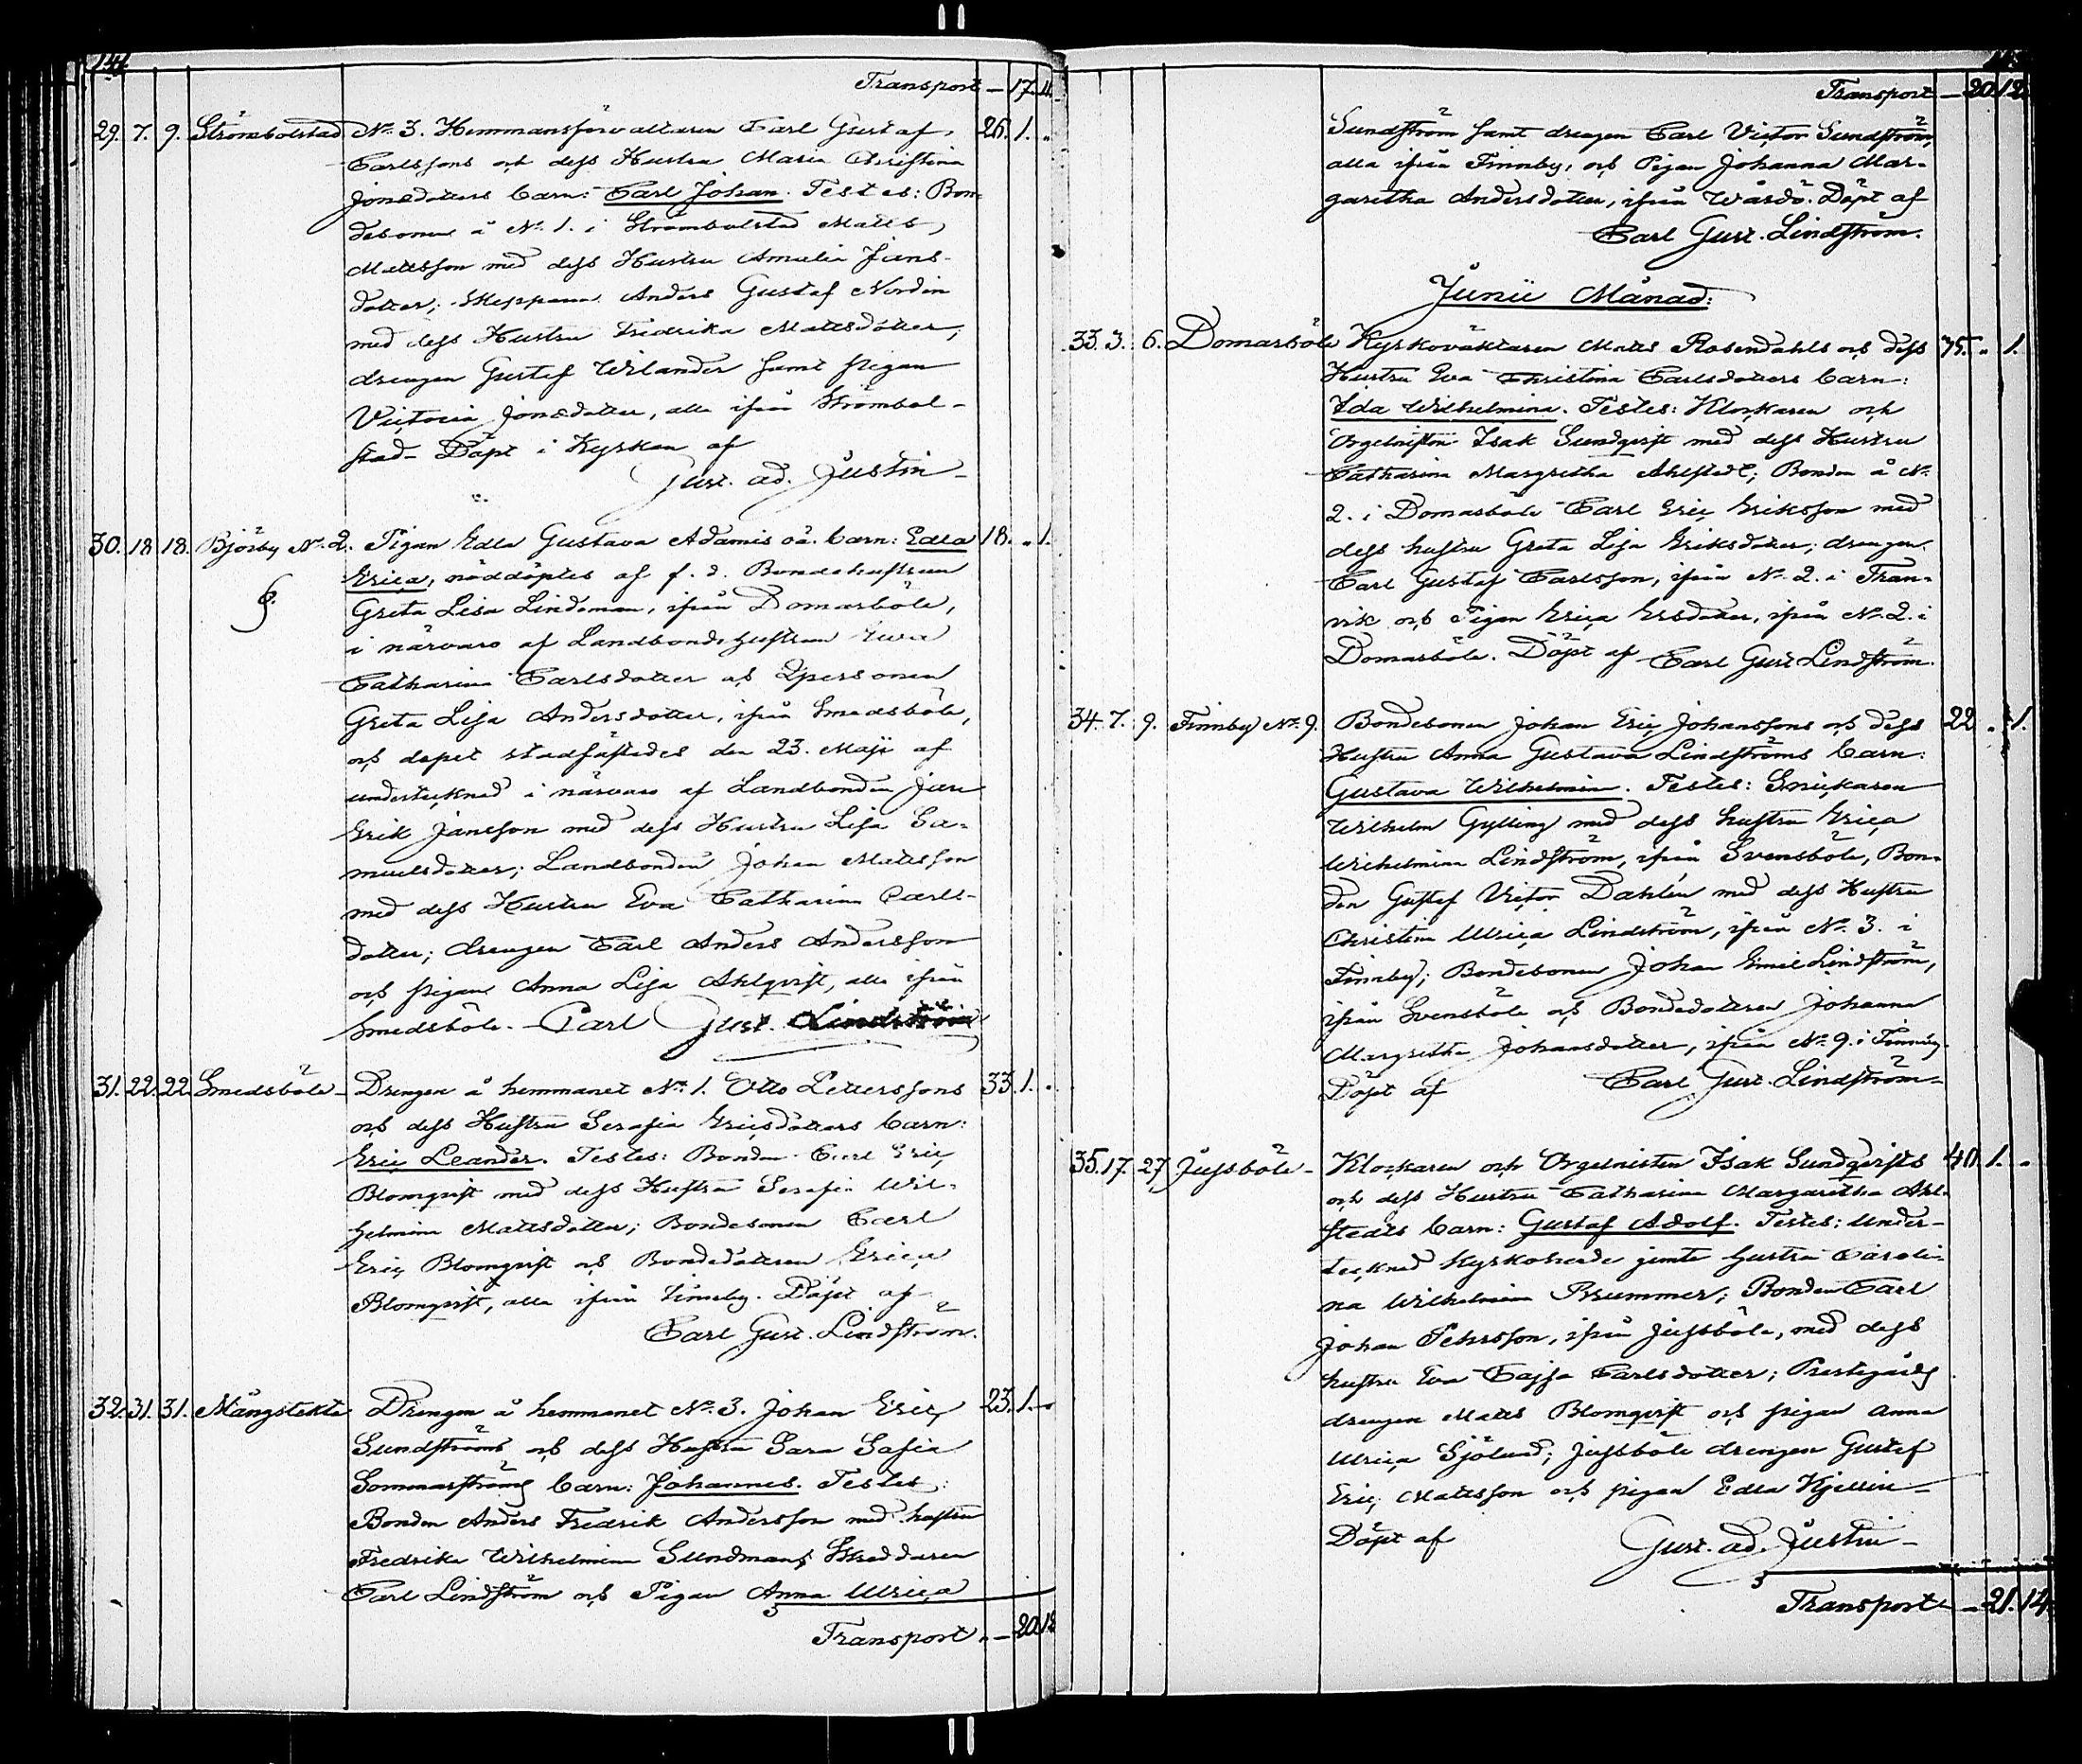 144
Transport — 17. 11.
29. 7. 9. Strömbolstad No. 3. Hemmansförvaltaren Carl Gustaf 26. 1. "
Carlssons och dess Hustru Maria Christina
Jonsdotters barn: Carl Johan. Testes: Bon-
desonen å No. 1. i Strömbolstad Matts
Mattsson med dess Hustru Amalia Jans-
dotter; Skepparen Anders Gustaf Nordin
med dess Hustru Fredrika Mattsdotter,
drengen Gustaf Wilander samt pigan
Victoria Jonsdotter, alla ifrån Strömbol-
stad. Döpt i Kyrkan af
Gust. Ad. Justin
30. 18. 18. Björby No. 2. Pigan Edla Gustava Adamis oä. barn: Edla 18. " 1.
Erica, nöddöptes af f. d. Bondehustrun
Greta Lisa Lindeman, ifrån Domarböle,
i närvaro af Landbondehustrun Eva
Catharina Carlsdotter och Qpersonen
Greta Lisa Andersdotter, ifrån Smedsböle,
och dopet stadfästades den 23. Maji af
undertecknad i närvaro af Landbonden Jan
Erik Jansson med dess Hustru Lisa Sa-
muelsdotter; Landbonden Johan Mattsson
med dess Hustru Eva Catharina Carls-
dotter; drengen Carl Anders Andersson
och pigan Anna Lisa Ahlqvist, alla ifrån
Smedsböle. Carl Gust. Lindström
31. 22. 22. Smedsböle Drengen å hemmanet No. 1. Otto Petterssons 33. 1. "
och dess Hustru Serafia Ericsdotters barn:
Eric Leander. Testes: Bonden Carl Eric
Blomqvist med dess Hustru Serafia Wil-
helmina Mattsdotter; Bondesonen Carl
Eric Blomqvist och Bondedottren Erica
Blomqvist, alla ifrån Finnby. Döpt af
Carl Gust. Lindström.
32. 31. 31. Mångstekta Drengen å hemmanet No. 3. Johan Eric 23. 1. "
Sundströms och dess Hustru Sara Sofia
Sommarströms barn: Johannes. Testes:
Bonden Anders Fredrik Andersson med hustru
Fredrika Wilhelmina Sundman; Skreddaren
Carl Lindström och Pigan Anna Ulrica
Transport — 20. 12
Transport — 20. 12.
Sundström samt drengen Carl Victor Sundström,
alla ifrån Finnby, och Pigan Johanna Mar-
garetha Andersdotter, ifrån Wårdö. Döpt af
Carl Gust. Lindström.
Junii Månad:
33. 3. 6. Domarböle Kyrkoväktaren Matts Rosendahls och dess 75. " 1.
Hustru Eva Christina Carlsdotters barn:
Ida Wilhelmina. Testes: Klockaren och
Orgelnisten Isak Sundqvist med dess Hustru
Catharina Margretha Ahlstedt; Bonden å No.
2. i Domarböle Carl Eric Eriksson med
dess hustru Greta Lisa Eriksdotter; drengen
Carl Gustaf Carlsson, ifrån No. 2. i Tran-
vik och Pigan Erica Ersdotter, ifrån No. 2. i
Domarböle. Döpt af Carl Gust Lindström.
34. 7. 9. Finnby No. 9. Bondesonen Johan Eric Johanssons och dess 22 " 1.
Hustru Anna Gustava Lindströms barn:
Gustava Wilhelmina. Testes: Snickaren
Wilhelm Gylling med dess hustru Erica
Wilhelmina Lindström, ifrån Svensböle, Bon-
den Gustaf Victor Dahlén med dess Hustru
Christina Ulrica Lindström, ifrån No. 3. i
Finnby; Bondesonen Johan Emil Lindström,
ifrån Svensböle och Bondedottren Johanna
Margretha Johansdotter, ifrån No. 9. i Finnby
Döpt af Carl Gust. Lindström
35. 17. 27. Jussböle Klockaren och Orgelnisten Isak Sundqvists 40. 1. "
och dess Hustru Catharina Margaretha Ahl-
stedts barn: Gustaf Adolf. Testes: Under-
tecknad Kyrkoherde jemte hustru Caroli-
na Wilhelmina Brummer; Bonden Carl
Johan Pehrsson, ifrån Jussböle, med dess
hustru Eva Cajsa Carlsdotter; Prestegårds
drengen Matts Blomqvist och pigan Anna
Ulrica Sjölund; Jussböle drengen Gustaf
Eric Mattsson och pigan Edla Kjellin
Döpt af Gust. Ad. Justin
Transport — 21. 14.